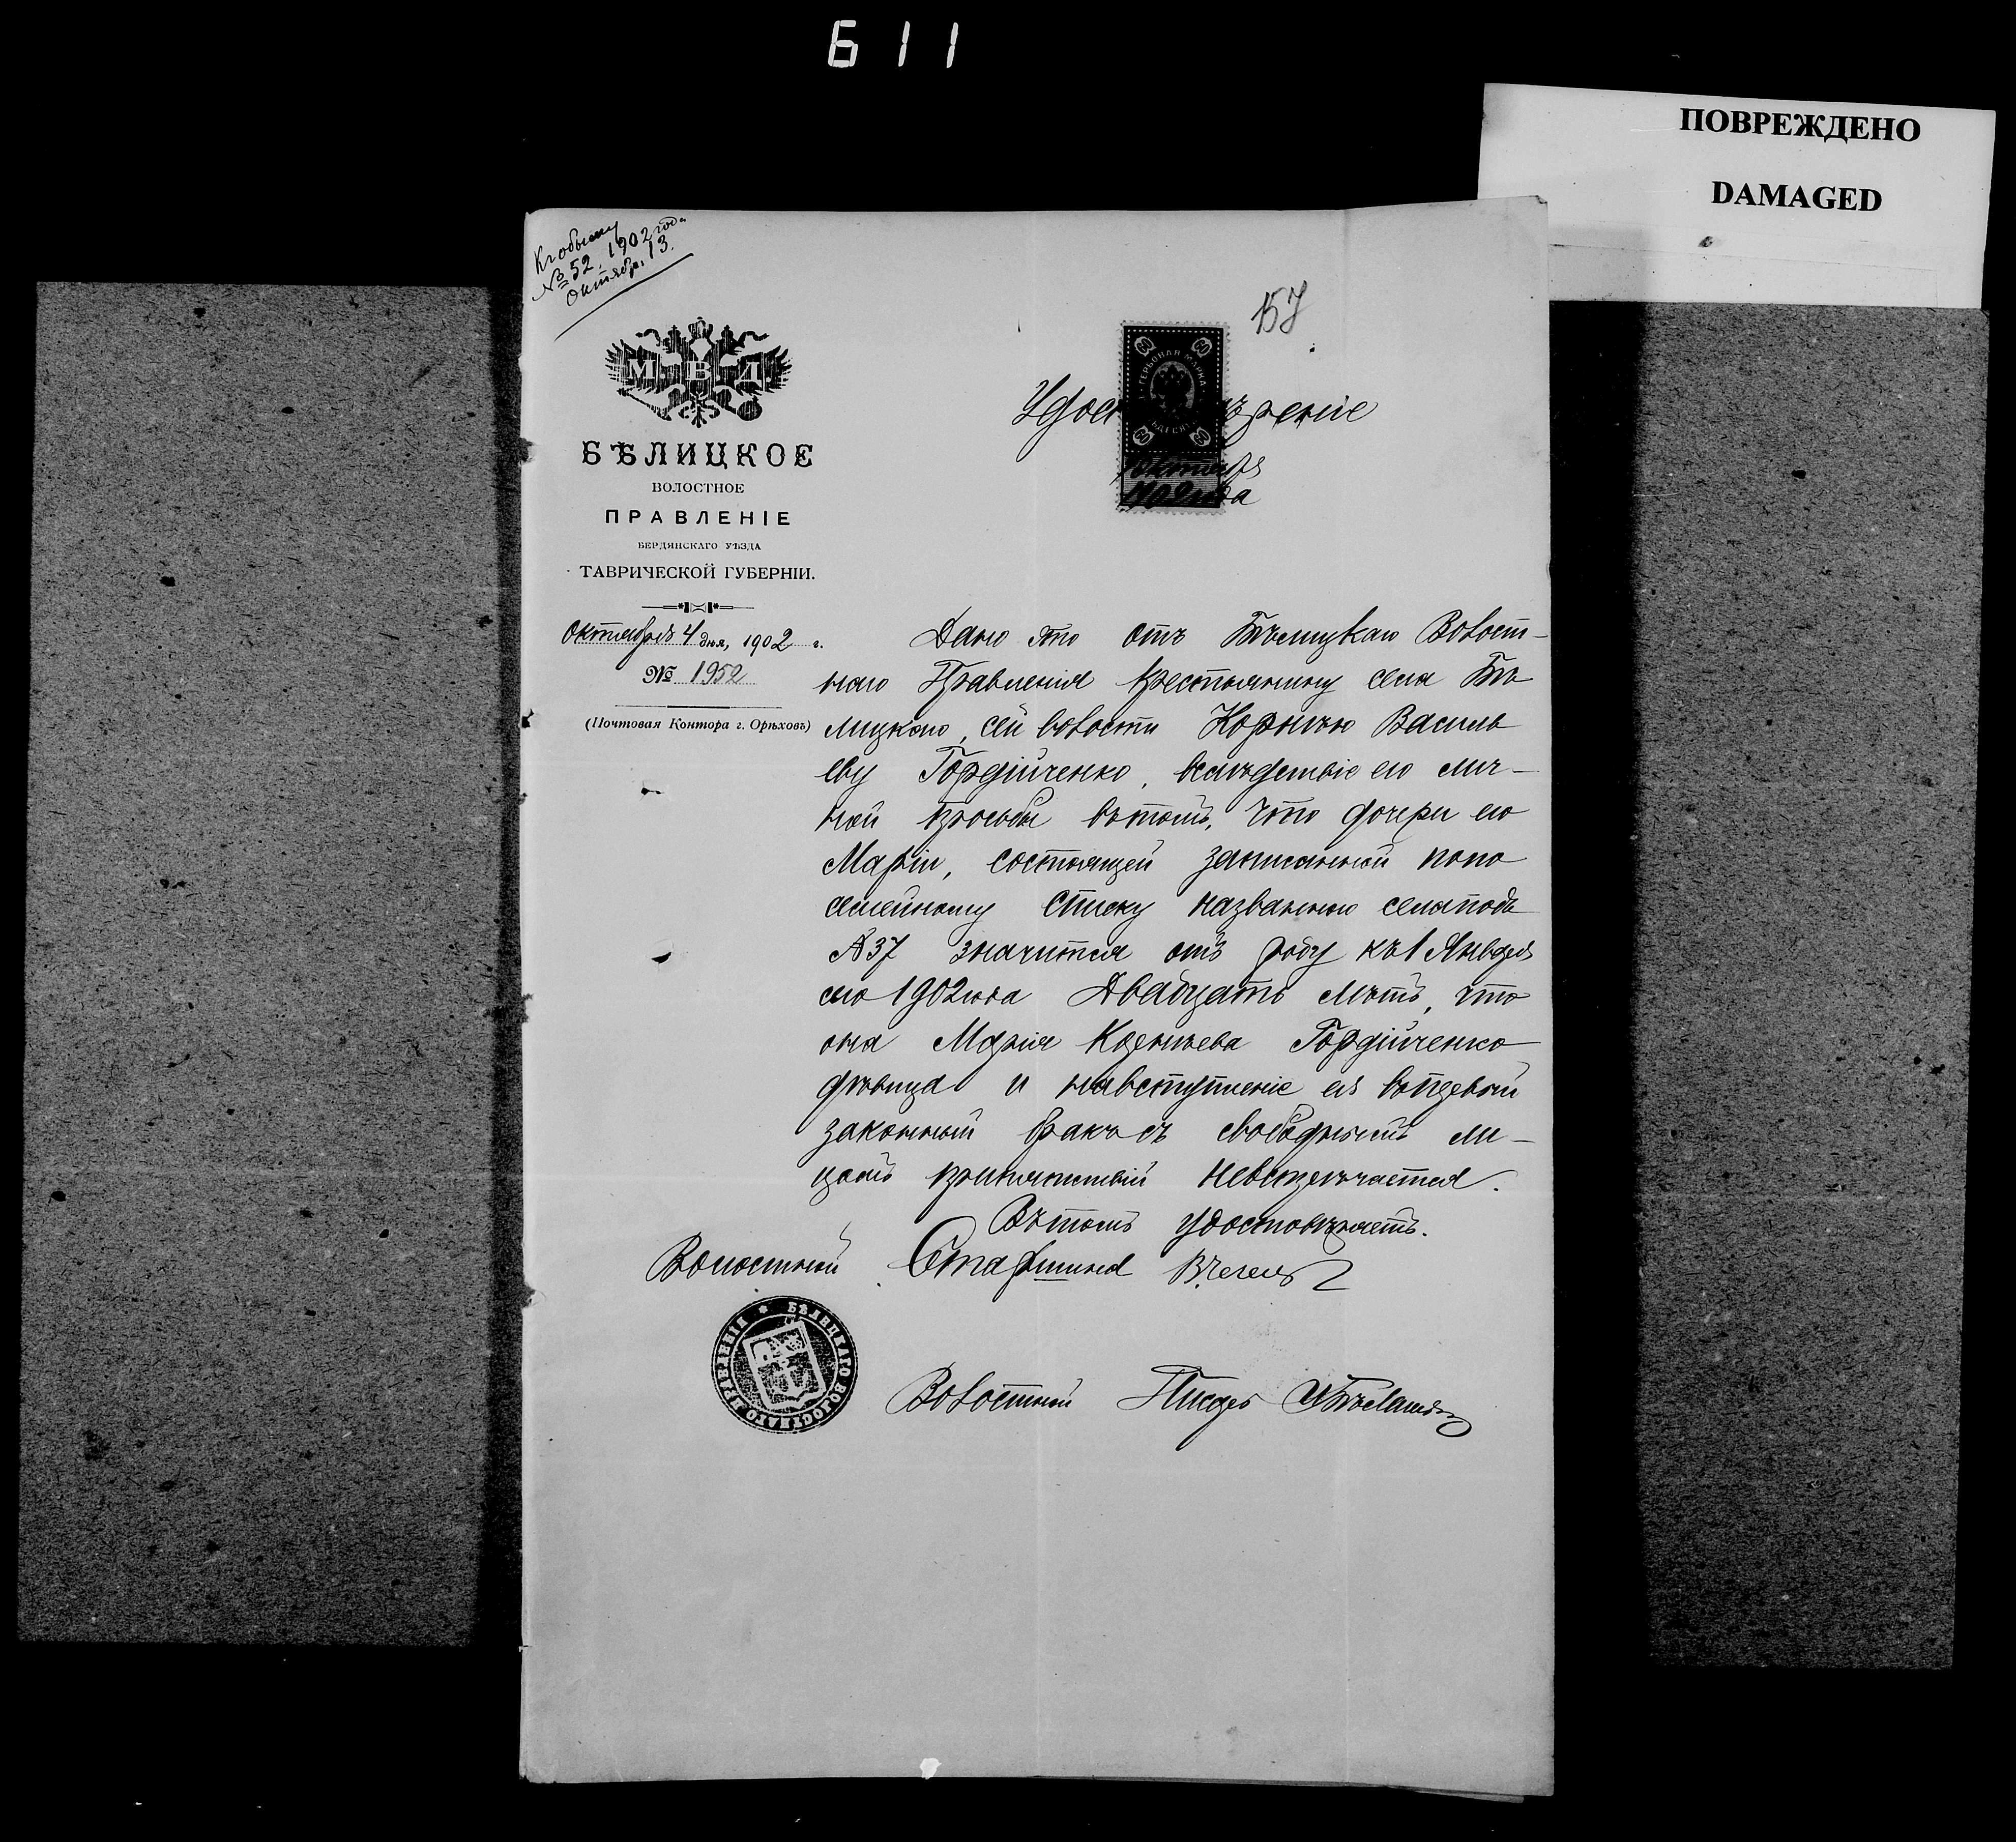 611
ПОВРЕЖДЕНО
DAMAGED
Къ обыску
№ 52. 1902 года
Октябр. 13.
157
М В Д
БѢЛИЦКОЕ
ВОЛОСТНОЕ
ПРАВЛЕНІЕ
БЕРДЯНСКАГО УѢЗДА
ТАВРИЧЕСКОЙ ГУБЕРНІИ.
Октября 4 дня, 1902 г.
№ 1952
(Почтовая Контора г. Орѣховъ)
60 60
ГЕРБОВАЯ МАРКА
60 60
Удостовѣреніе
Октября
1902 года
Дано это отъ Бѣлицкаго Волост-
наго Правленія крестьянину села Бѣ
лицкаго, сей волости Корнѣю Василь
еву Гордійченко, вслѣдствіе его лич-
ной просьбы въ томъ, что дочери его
Маріи, состоящей записанной по по
семейному списку названнаго села подъ
№ 37 значится отъ роду къ 1 Января
сего 1902 года Двадцать лѣтъ, что
она Марія Корнѣева Гордійченко
дѣвица и на вступленіе ея въ первый
законный бракъ съ свободнымъ ли-
цомъ препятствій не встрѣчается.
Въ томъ удостовѣряетъ.
Волостной Старшина
БѢЛИЦКАГО ВОЛОСТНАГО ПРАВЛЕНІЯ *
Волостной Писарь